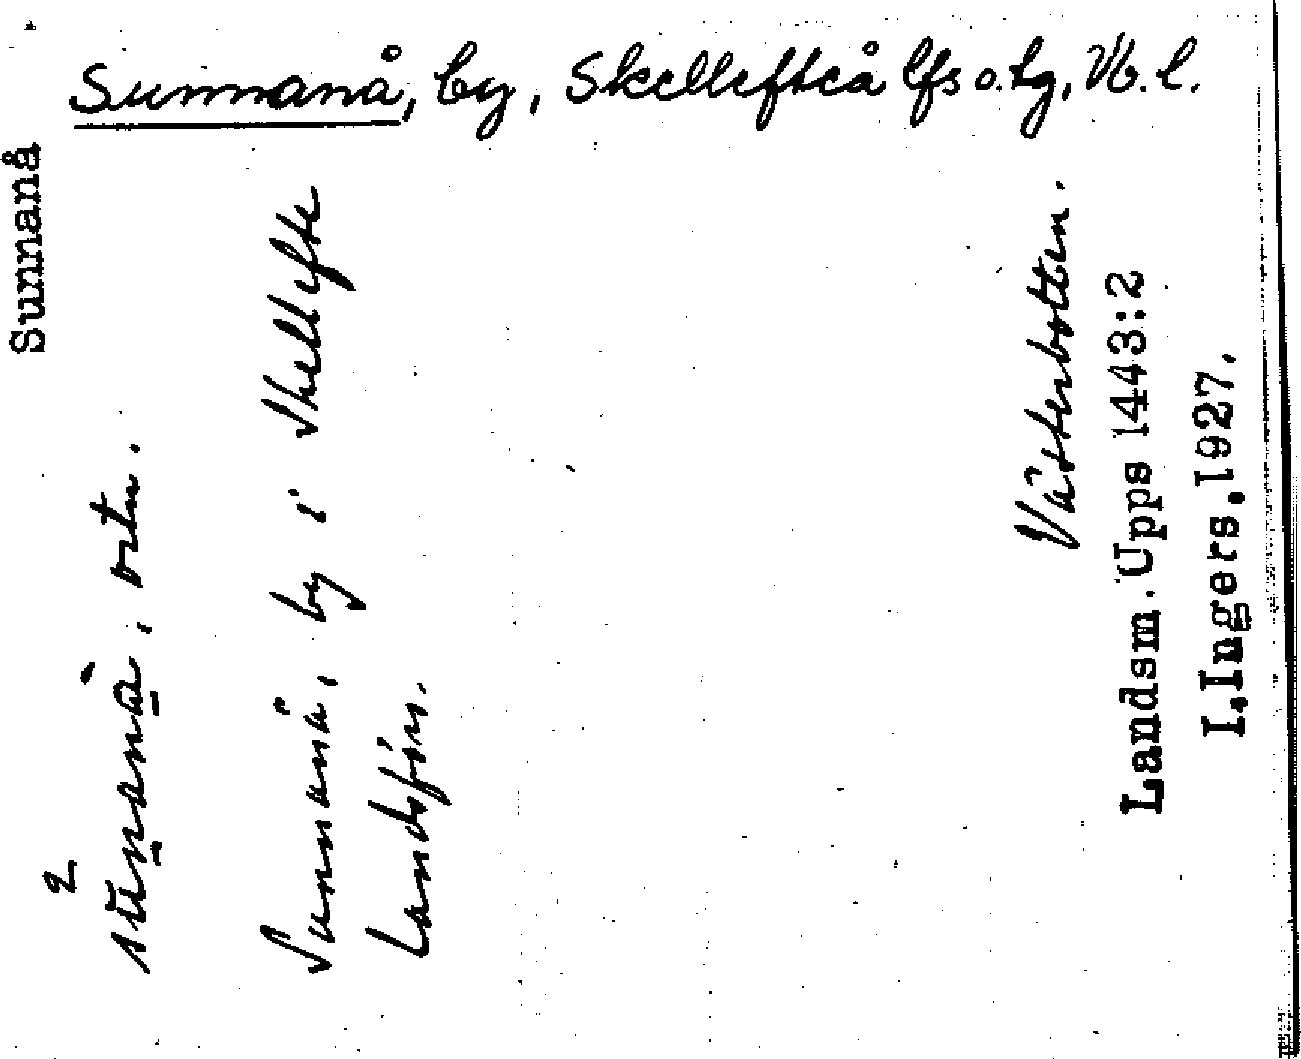 Sunnanå, by, Skellefteå lfs o. tg, Vb. l.
Sunnanå
sunaná, ortn.
Sunnanå, by i Skellefte
landsförs.
Västerbotten.
Landsm. Upps 1443:2
I. Ingers, 1927.